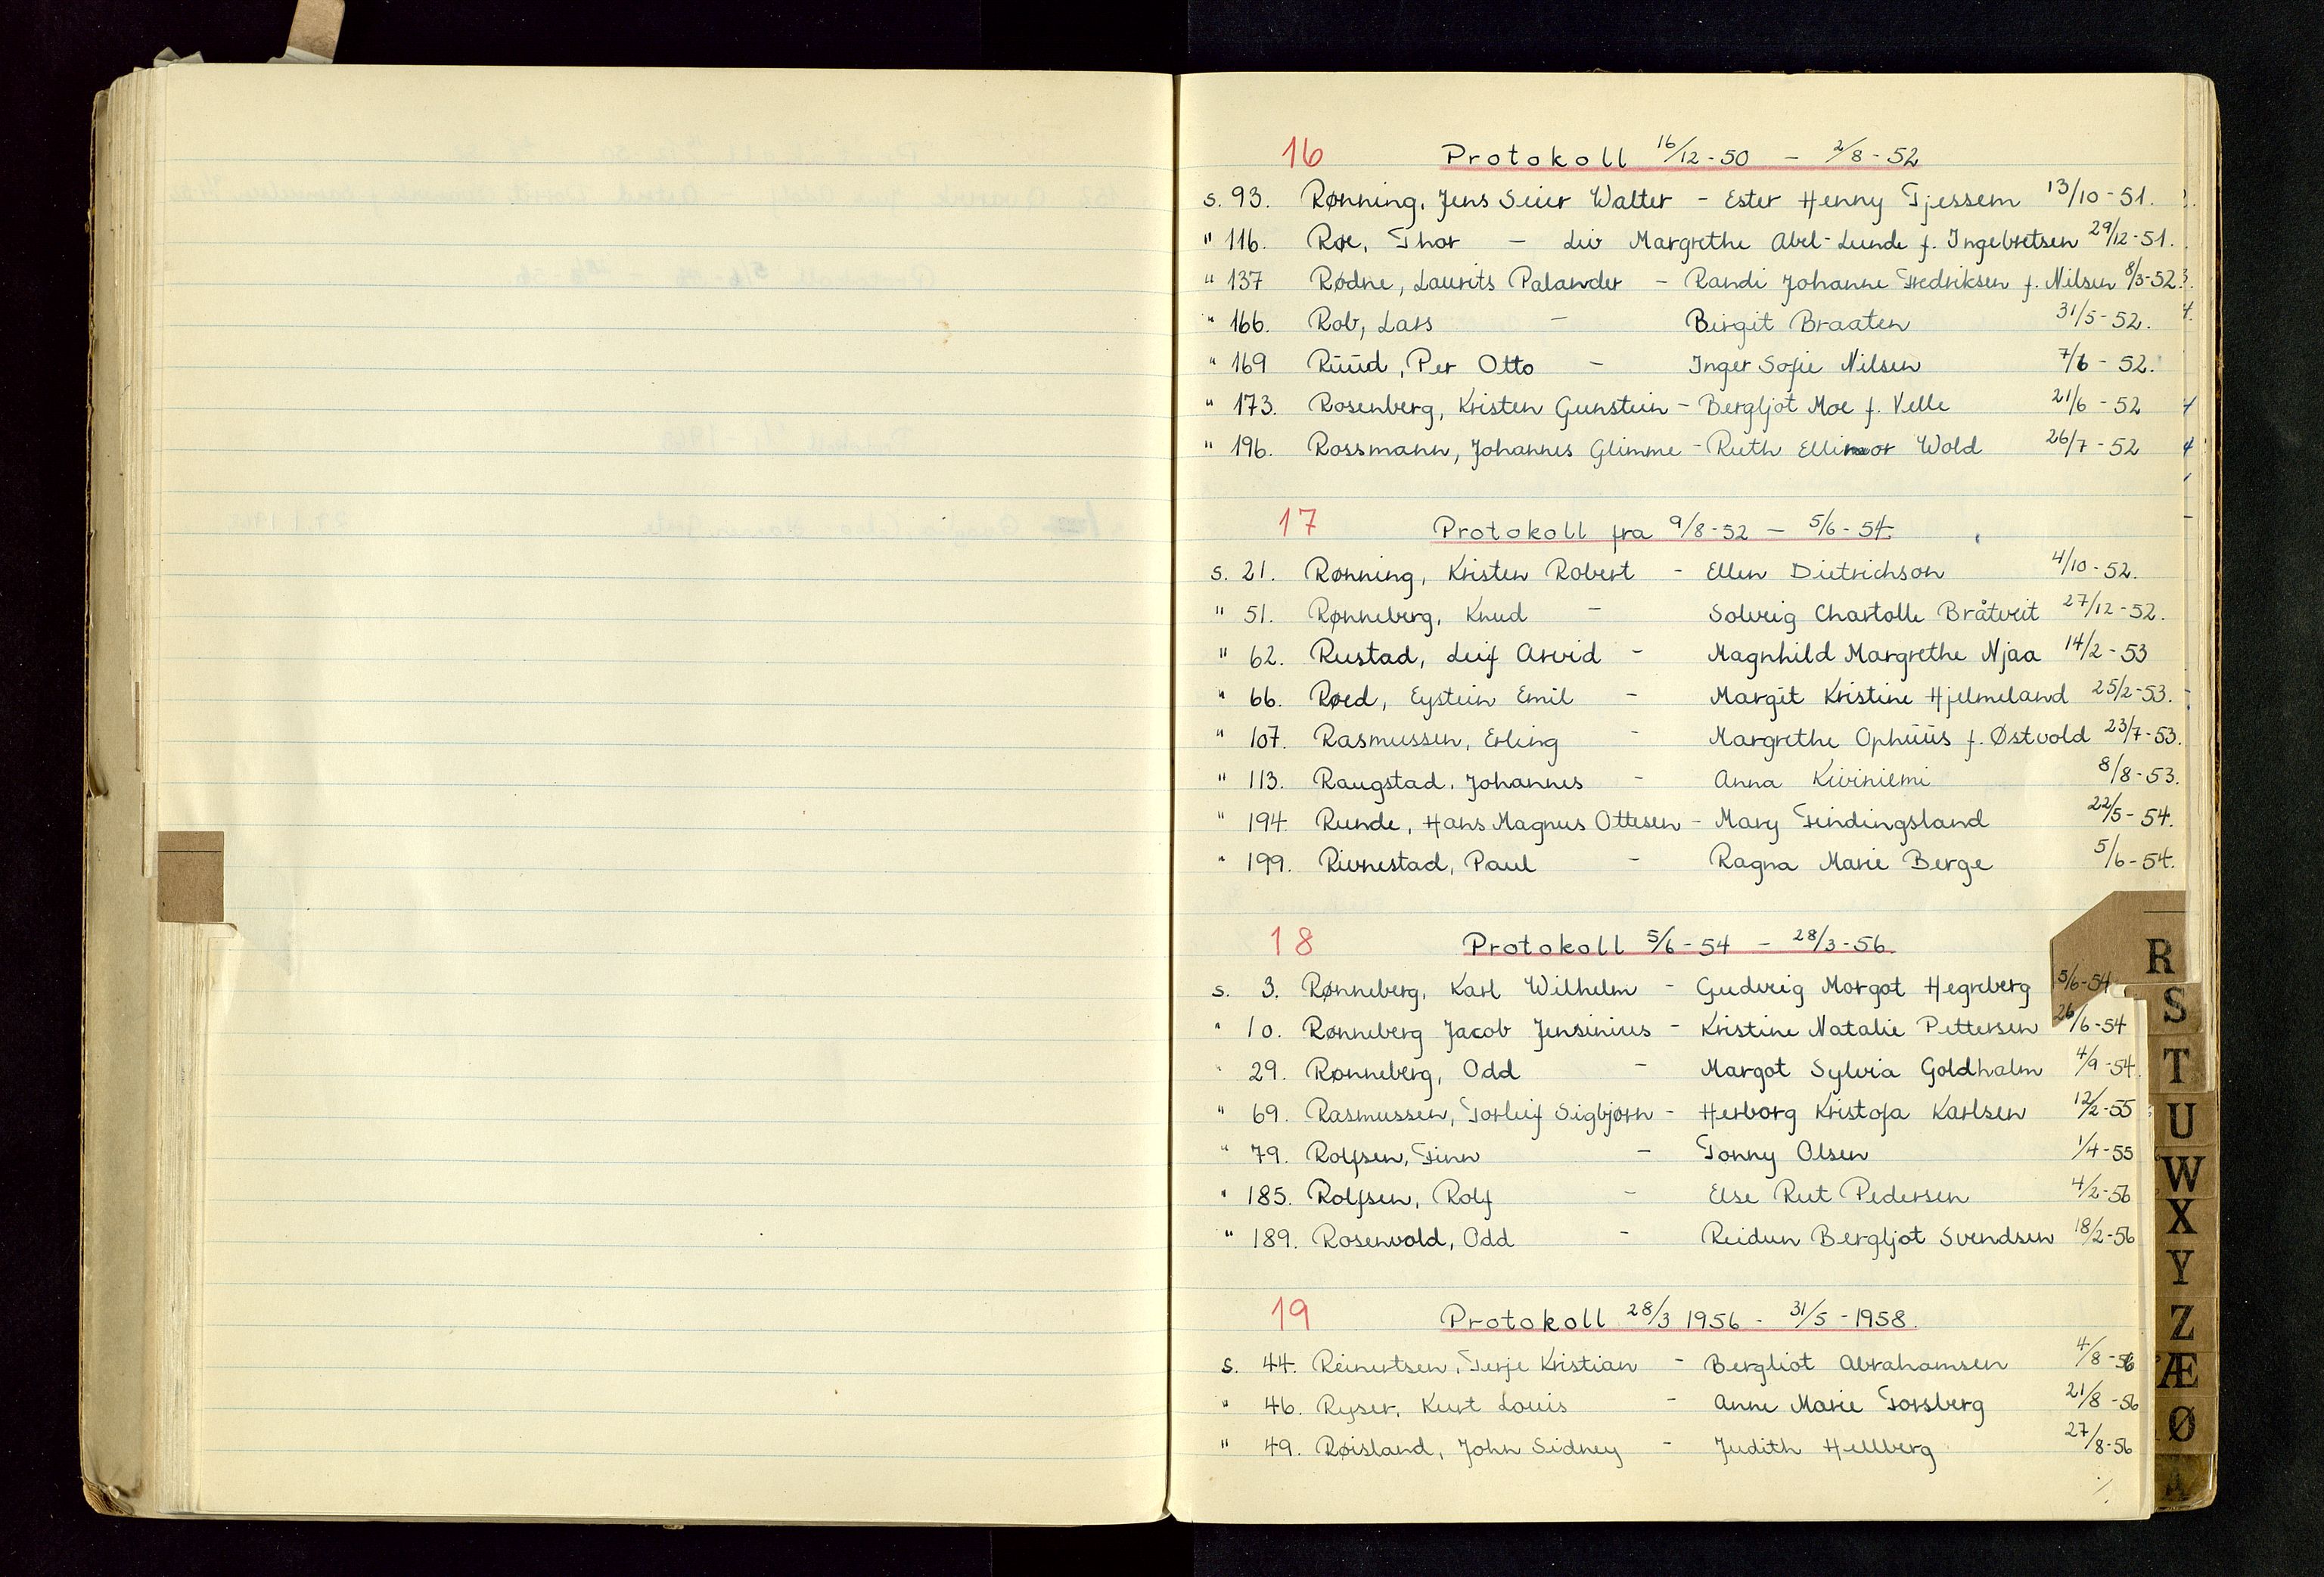 16 Protokoll 16/12-50 - 2/8-52
s. 93. Rønning, Jens Seier Walter - Ester Henny Tjessem 13/10-51.
" 116. Roe, Thor - Liv Margrethe Abel-Lunde f. Ingebretsen 29/12-51.
" 137 Rødne, Laurits Palander - Randi Johanne Fredriksen f. Nilsen 8/3-52.
" 166. Rob, Lars - Birgit Braaten 31/5-52.
" 169 Ruud, Per Otto - Inger Sofie Nilsen 7/6-52.
" 173. Rosenberg, Kristen Gunstein - Bergljot Moe f. Velle 21/6-52
" 196. Rossmann, Johannes Glimme - Ruth Ellinor Wold 26/7-52
17 Protokoll fra 9/8-52 - 5/6-54.
s. 21. Rønning, Kristen Robert - Ellen Dietrichson 4/10-52.
" 51. Rønneberg, Knud - Solveig Chartolle Bråtveit 27/12-52.
" 62. Rustad, Leif Arvid - Magnhild Margrethe Njaa 14/2-53
" 66. Roed, Eystein Emil - Margit Kristine Hjelmeland 25/2-53.
" 107. Rasmussen, Erling - Margrethe Ophuus f. Østvold 23/7-53.
" 113. Raugstad, Johannes - Anna Kiviniemi 8/8-53.
" 194. Runde, Hans Magnus Ottesen - Mary Findingsland 22/5-54.
" 199. Rivnestad, Paul - Ragna Marie Berge 5/6-54.
18 Protokoll 5/6-54 - 28/3-56.
s. 3. Rønneberg, Karl Wilhelm - Gudveig Margot Hegreberg 5/6-54
" 10. Rønneberg Jacob Jensinius - Kristine Natalie Pettersen 26/6-54
" 29. Rønneberg, Odd - Margot Sylvia Goldholm 4/9-54.
" 69. Rasmussen, Torleif Sigbjørn - Herborg Kristofa Karlsen 12/2-55
" 79. Rolfsen, Finn - Tonny Olsen 1/4-55
" 185. Rolfsen, Rolf - Else Rut Pedersen 4/2-56
" 189. Rosenvold, Odd - Reidun Bergljot Svendsen 18/2-56
19 Protokoll 28/3 1956 - 31/5-1958.
s. 44. Reinertsen, Terje Kristian - Bergliot Abrahamsen 4/8-56
" 46. Ryser, Kurt Louis - Anne Marie Forsberg 21/8-56
" 49. Røisland, John Sidney - Judith Hellberg 27/8-56
R
S
T
U
W
X
Y
Z
Æ
Ø